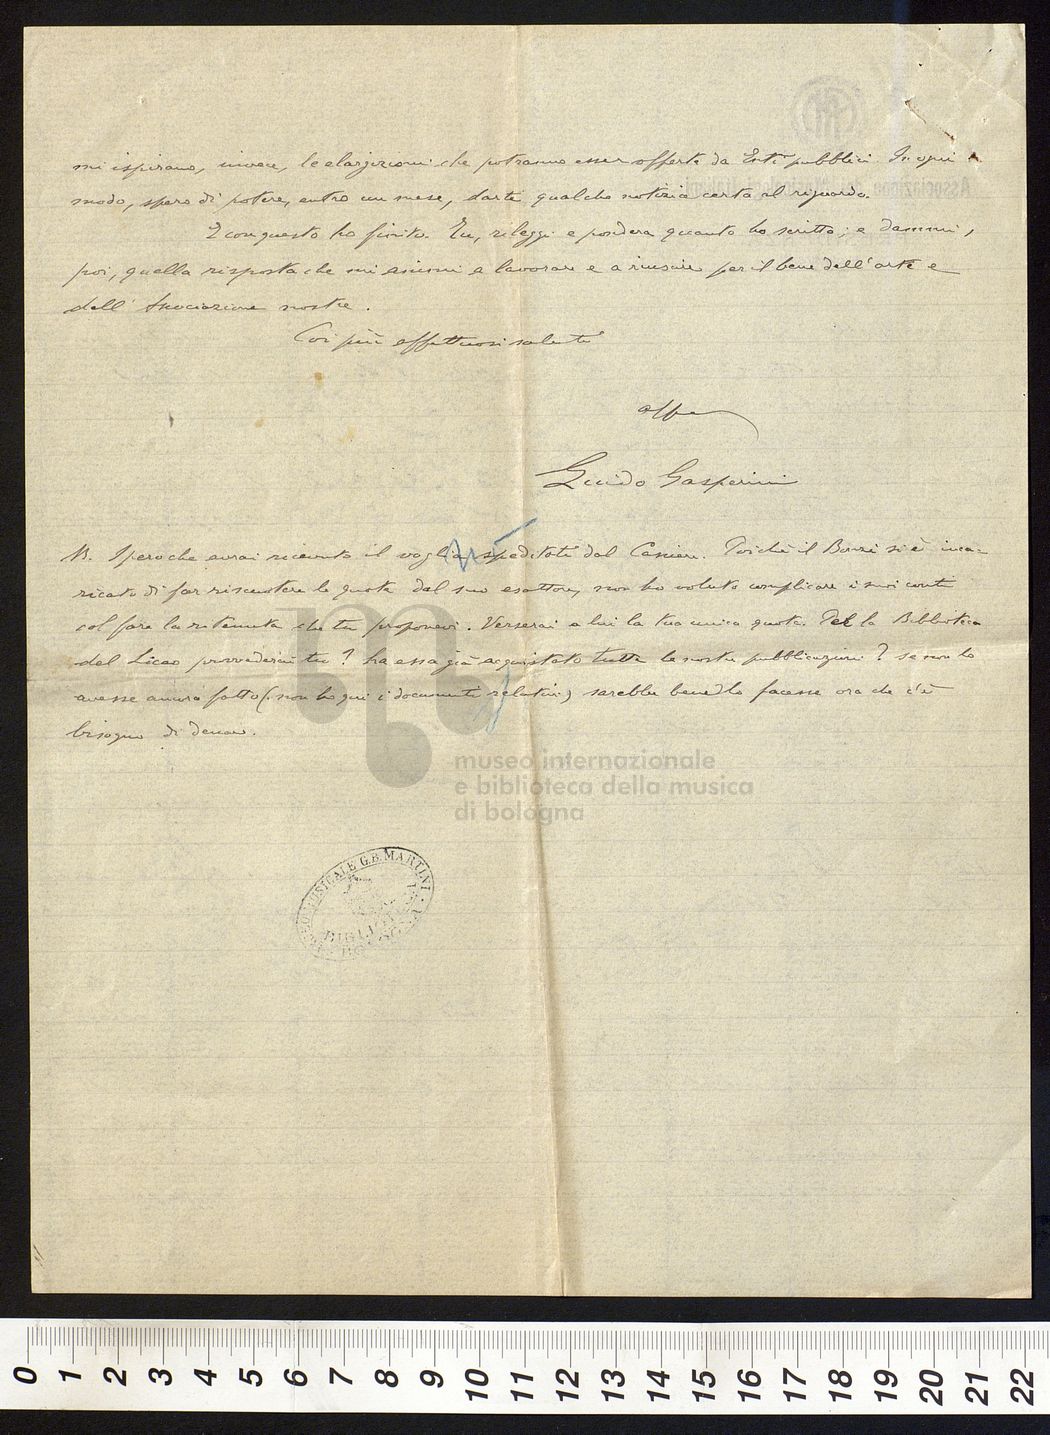 mi ispirano, invece, le elargizioni che potranno esser offerte da Enti pubblici. In ogni
modo, spero di potere, entro un mese, darte qualche notizia certa al riguardo.
E con questo ho finito. Tu, rileggi e pondera quanto ho scritto; e dammi,
poi, quella risposta che mi animi a lavorare e a riuscire per il bene dell'arte e
dell'Associazione nostra.
Coi più affettuosi saluti
aff
Guido Gasperini
B. Spero che avrai ricevuto il vaglia speditoti dal Cassiere. Poichè il Bonzi si è inca-
ricato di far riscuotere le quote dal suo esattore, non ho voluto complicare i suoi conti
col fare la ritenuta che tu proponevi. Verserai a lui la tua unica quota. Della Biblioteca
del Liceo provvederai tu? ha essa già acquistato tutte le nostre pubblicazioni? se non lo
avesse ancora fatto (non ho qui i documenti relativi) sarebbe bene lo facesse ora che c'è
bisogno di denaro.
museo internazionale
e biblioteca della musica
di bologna
MUSICALE G.B. MARTINI
0 1 2 3 4 5 6 7 8 9 10 11 12 13 14 15 16 17 18 19 20 21 22